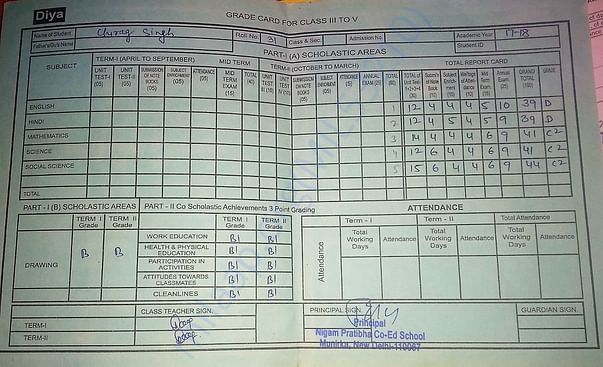 Diya
GRADE CARD FOR CLASS III TO V
Name of Student Chirag Singh Roll No. 31 Class & Sec. Admission No. Academic Year 17-18
Father's/Gu's Name Student ID
PART-I (A) SCHOLASTIC AREAS
SUBJECT TERM-I (APRIL TO SEPTEMBER) MID TERM TERM-II (OCTOBER TO MARCH) TOTAL REPORT CARD
UNIT TEST-I (05) UNIT TEST-II (05) SUBMISSION OF NOTE BOOKS (05) SUBJECT ENRICHMENT (05) ATTENDANCE (05) MID TERM EXAM (15) TOTAL (40) UNIT TEST III (10) UNIT TEST IV (10) SUBMISSION OF NOTE BOOKS (05) SUBJECT ENRICHMENT (05) ATTENDANCE (5) ANNUAL EXAM (25) TOTAL (60) GRAND TOTAL (100) GRADE
ENGLISH 1 12 4 4 5 10 39 D
HINDI 2 12 4 5 4 5 9 39 D
MATHEMATICS 3 14 4 4 4 6 9 41 C2
SCIENCE 4 12 6 4 4 6 9 41 C2
SOCIAL SCIENCE 5 15 6 4 4 6 9 44 C2
TOTAL
PART - I (B) SCHOLASTIC AREAS PART - II Co Scholastic Achievements 3 Point Grading ATTENDANCE
TERM I Grade TERM II Grade TERM I Grade TERM II Grade Term - I Term - II Total Attendance
Attendance Total Working Days Attendance Total Working Days Attendance Total Working Days Attendance
DRAWING B B
WORK EDUCATION B1 B1
HEALTH & PHYSICAL EDUCATION B1 B1
PARTICIPATION IN ACTIVITIES B1 B1
ATTITUDES TOWARDS CLASSMATES B1 B1
CLEANLINES B1 B1
CLASS TEACHER SIGN. PRINCIPAL SIGN. GUARDIAN SIGN.
TERM-I
TERM-II
Principal
Nigam Pratibha Co-Ed School
Munirka, New Delhi-110067